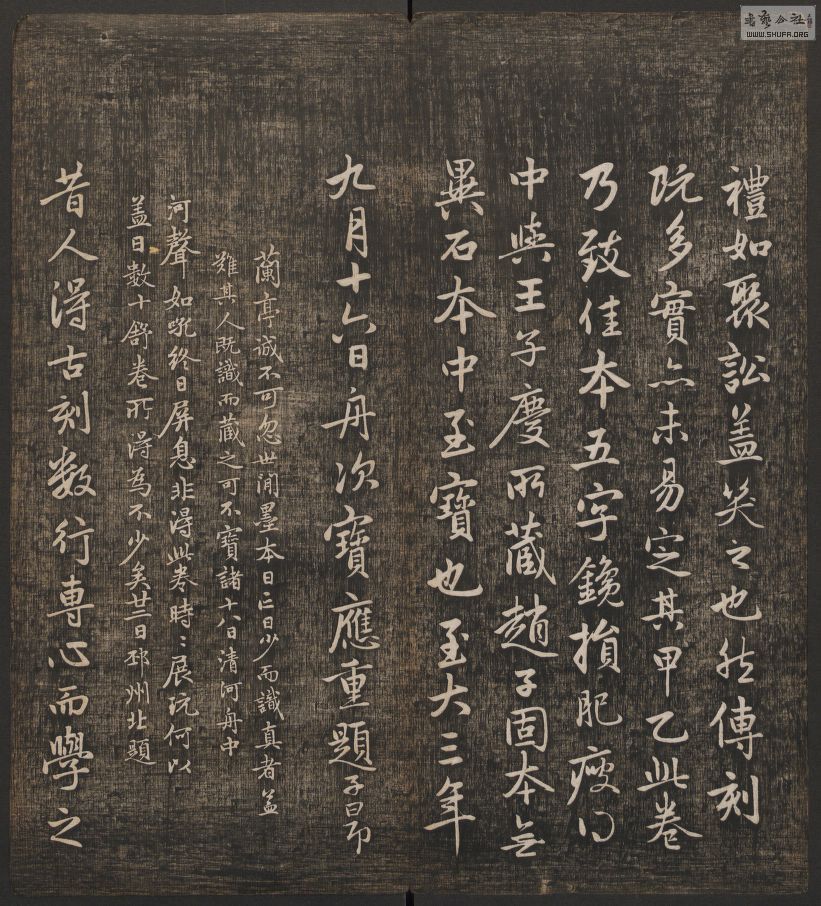 禮如聚訟蓋笑之也然傳刻
既多實亦未易定其甲乙此卷
乃致佳本五字鑱損肥瘦得
中與王子慶所藏趙子固本無
異石本中至寶也至大三年
九月十六日舟次寶應重題子昂
蘭亭誠不可忽世間墨本日亡日少而識真者蓋
難其人既識而藏之可不寶諸十八日清河舟中
河聲如吼終日屏息非得此卷時時展玩何以
蓋日數十舒卷所得為不少矣廿二日邳州北題
昔人得古刻數行專心而學之
書藝公社
WWW.SHUFA.ORG